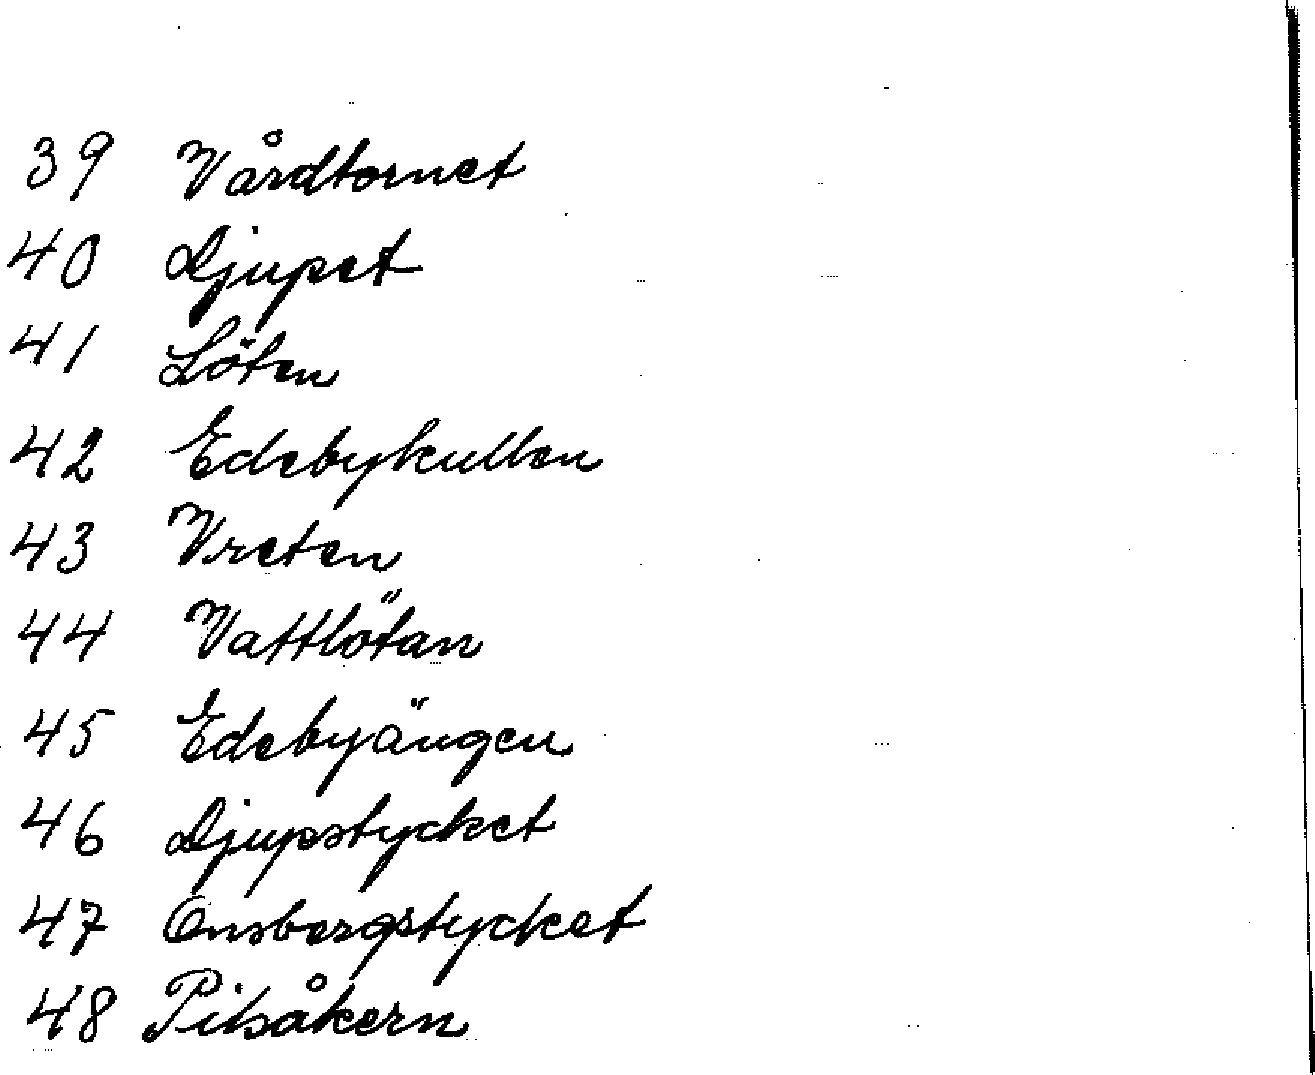 39 Vårdtornet
40 Djupet
41 Löten
42 Edebykullen
43 Vreten
44 Vattlötan
45 Edebyängen
46 Djupstycket
47 Onsbergstycket
48 Pilsåkern